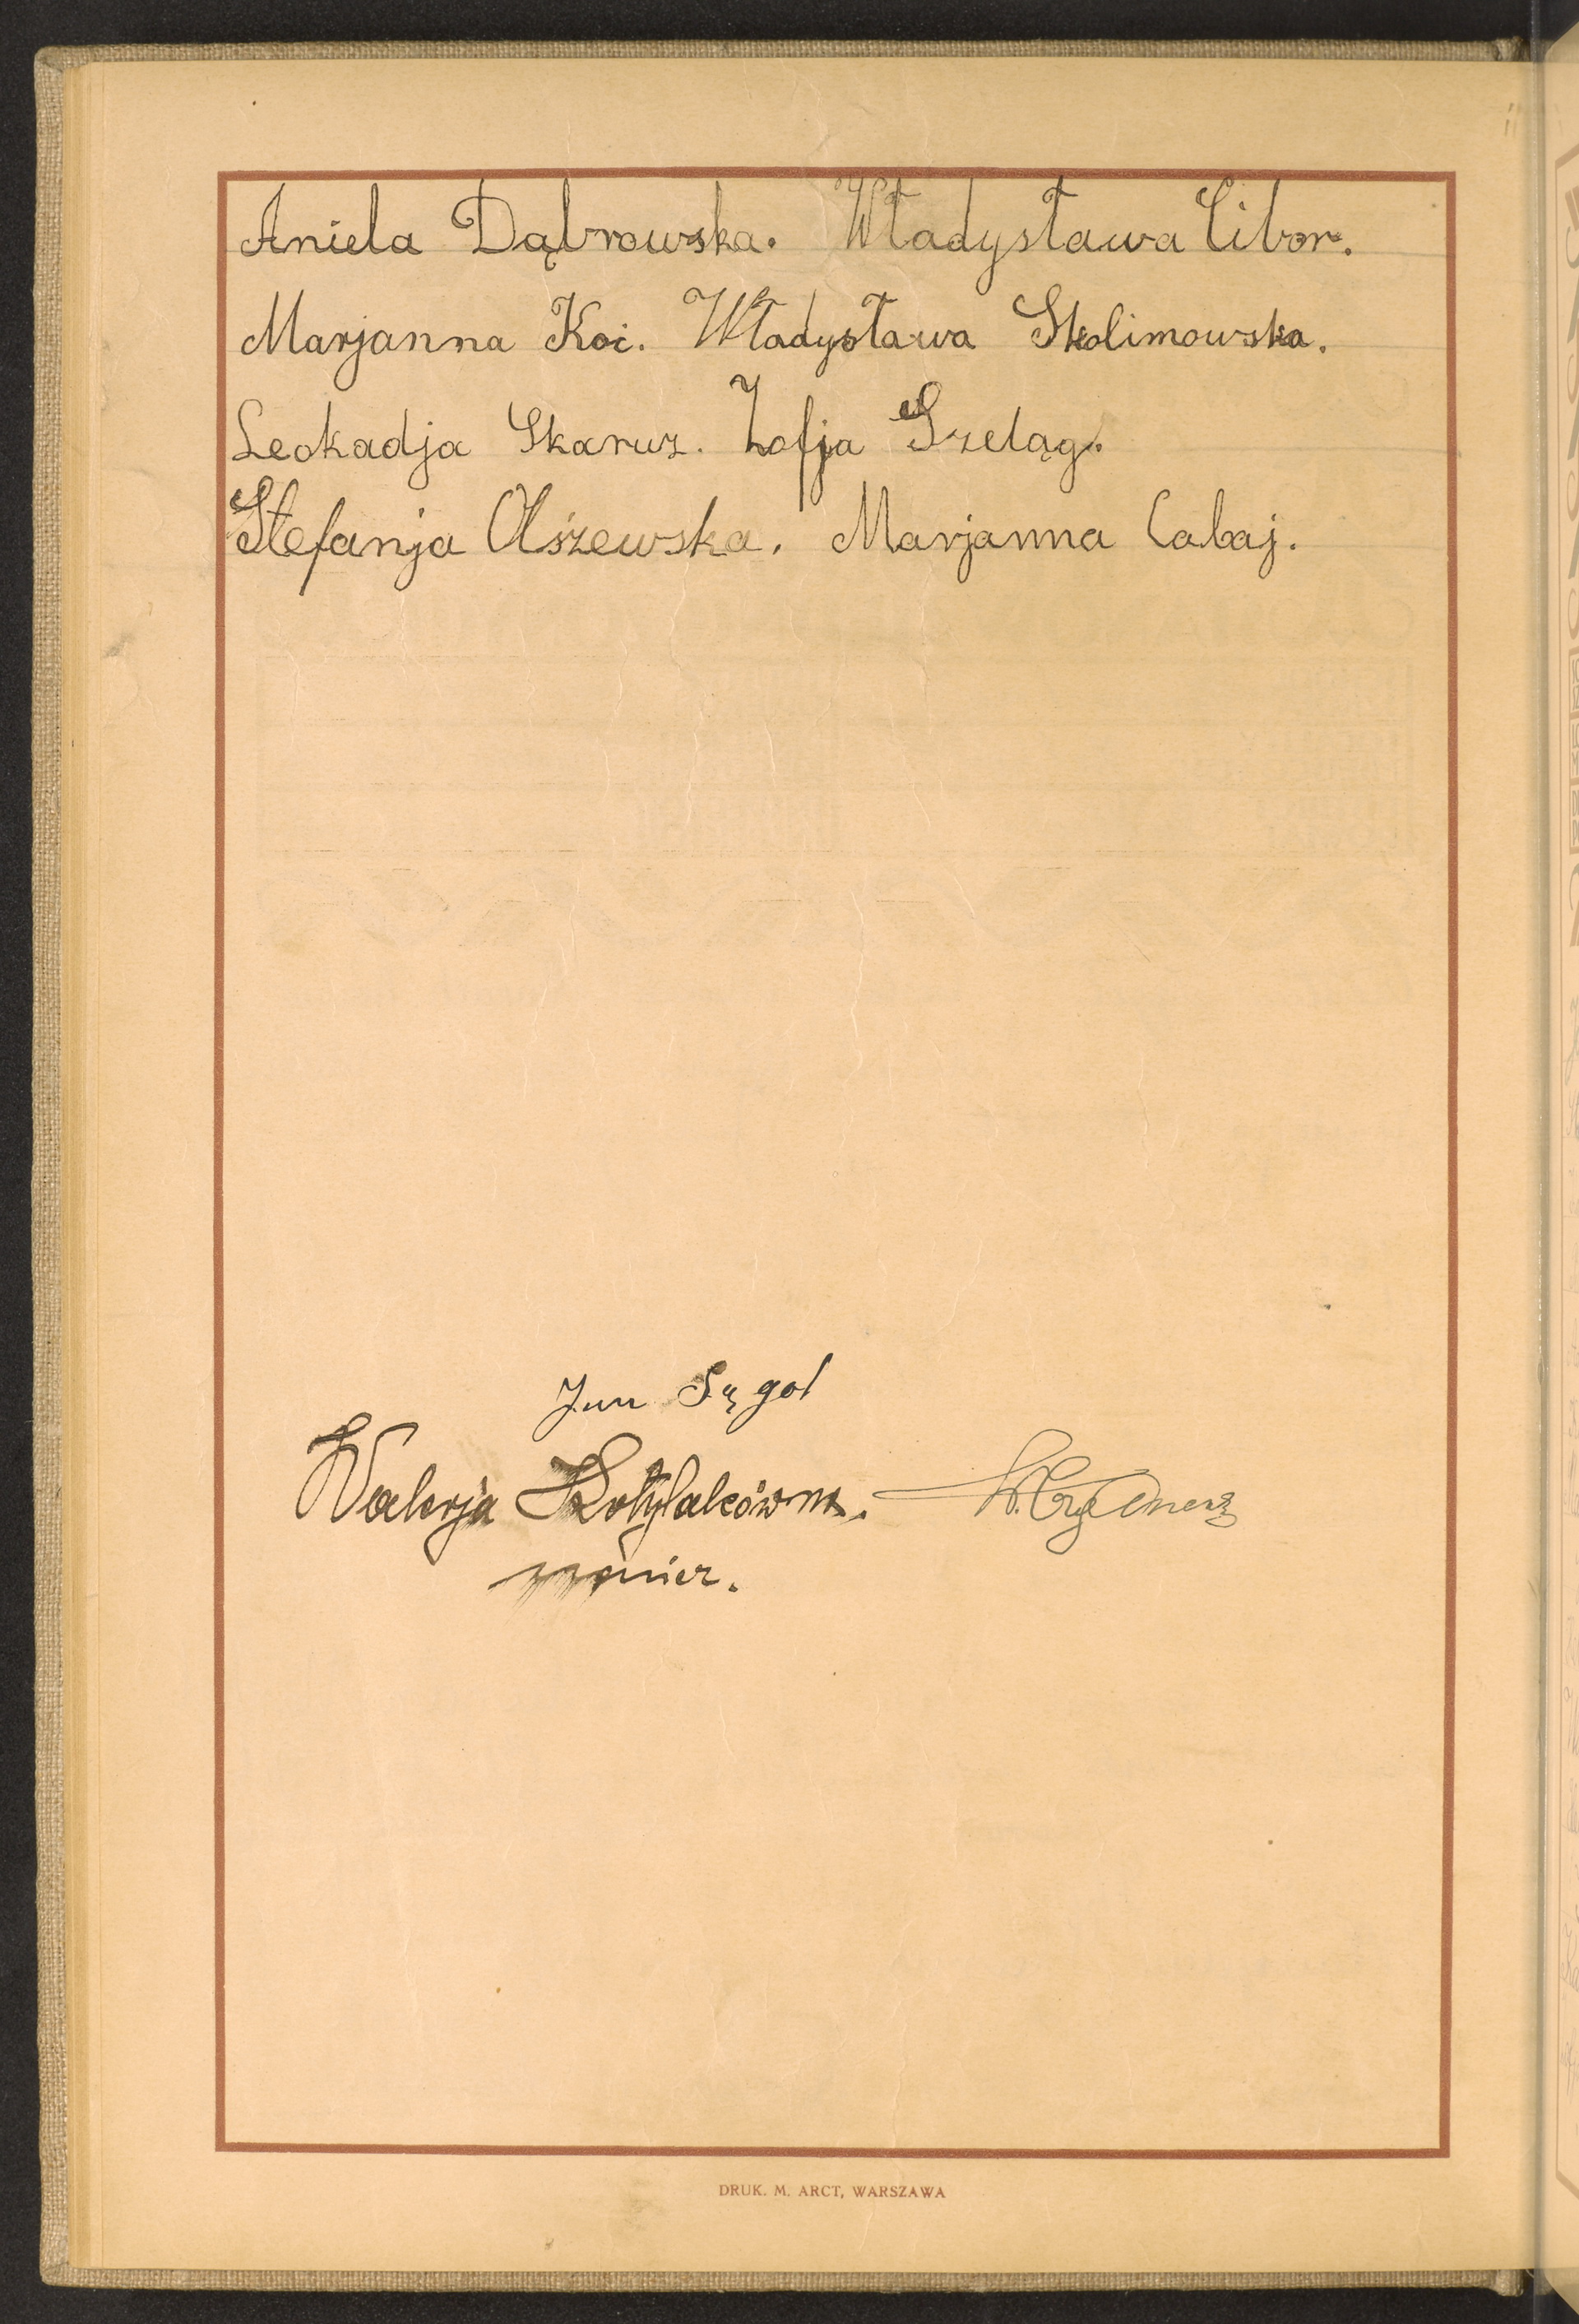 Aniela Dąbrowska. Władysława Cibor.
Marjanna Koć. Władysława Skolimowska.
Leokadja Skarus. Zofja Szeląg.
Stefanja Olszewska. Marjanna Cabaj.
Jan
Walerja
DRUK. M. ARCT, WARSZAWA